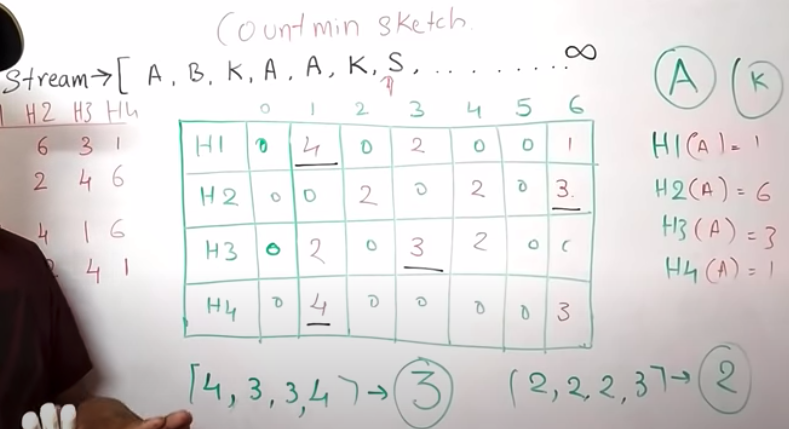 Countmin sketch
Stream→[ A, B, K, A, A, K, S, . . . . . . . . ∞
A K
H2 H3 H4
6 3 1
2 4 6
4 1 6
4 1
0 1 2 3 4 5 6
H1 0 4 0 2 0 0 1
H2 0 0 2 0 2 0 3
H3 0 2 0 3 2 0
H4 0 4 0 0 0 0 3
H1(A) = 1
H2(A) = 6
H3(A) = 3
H4(A) = 1
[4, 3, 3, 4] → 3
[2, 2, 2, 3] → 2